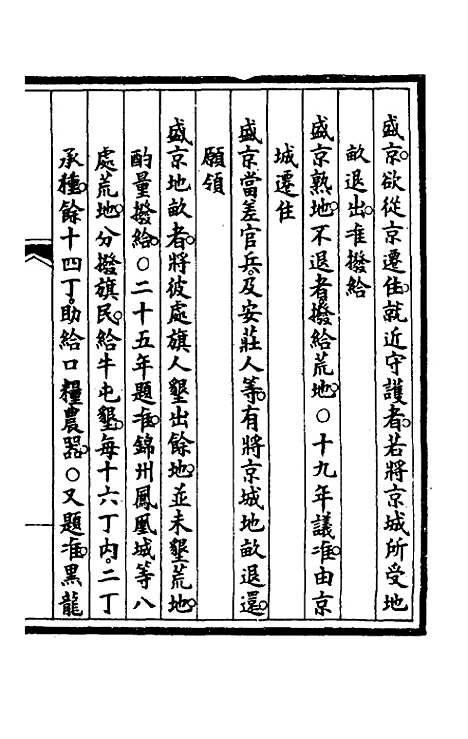 盛京。欲從京遷住。就近守護者。若將京城所受地
畝退出。准撥給
盛京熟地。不退者。撥給荒地。○十九年議准。由京
城遷住
盛京當差官兵。及安莊人等。有將京城地畝退還。
願領
盛京地畝者。將彼處旗人墾出餘地。並未墾荒地。
酌量撥給。○二十五年題准。錦州鳳凰城等八
處荒地。分撥旗民。給牛屯墾。每十六丁內。二丁
承種。餘十四丁。助給口糧農器。○又題准。黑龍